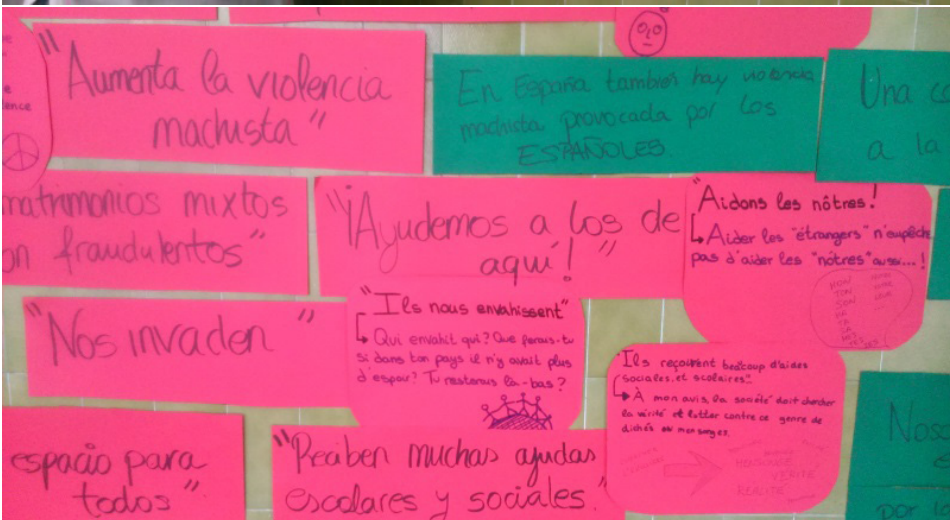 ence
"Aumenta la violencia
machista"
En España tambien hay violencia
machista provocada por los
ESPAÑOLES
Una
a la
matrimonios mixtos
on fraudulentos"
"¡Ayudemos a los de
aquí!"
"Aidons les nôtres!
Aider les "étrangers" n'empêche
pas d'aider les "nôtres" aussi...!
MON
TON
SON
MA
TA
SA
"Nos invaden"
"Ils nous envahissent"
Qui envahit qui? Que ferais-tu
si dans ton pays il n'y avait plus
d'espoir? Tu resterais là-bas?
"Ils reçoivent beaucoup d'aides
sociales, et scolaires".
À mon avis, la société doit chercher
la vérité et lutter contre ce genre de
clichés ou mensonges.
MENSONGE
VÉRITÉ
RÉALITÉ
espacio para
todos"
"Reciben muchas ayudas
escolares y sociales."
por